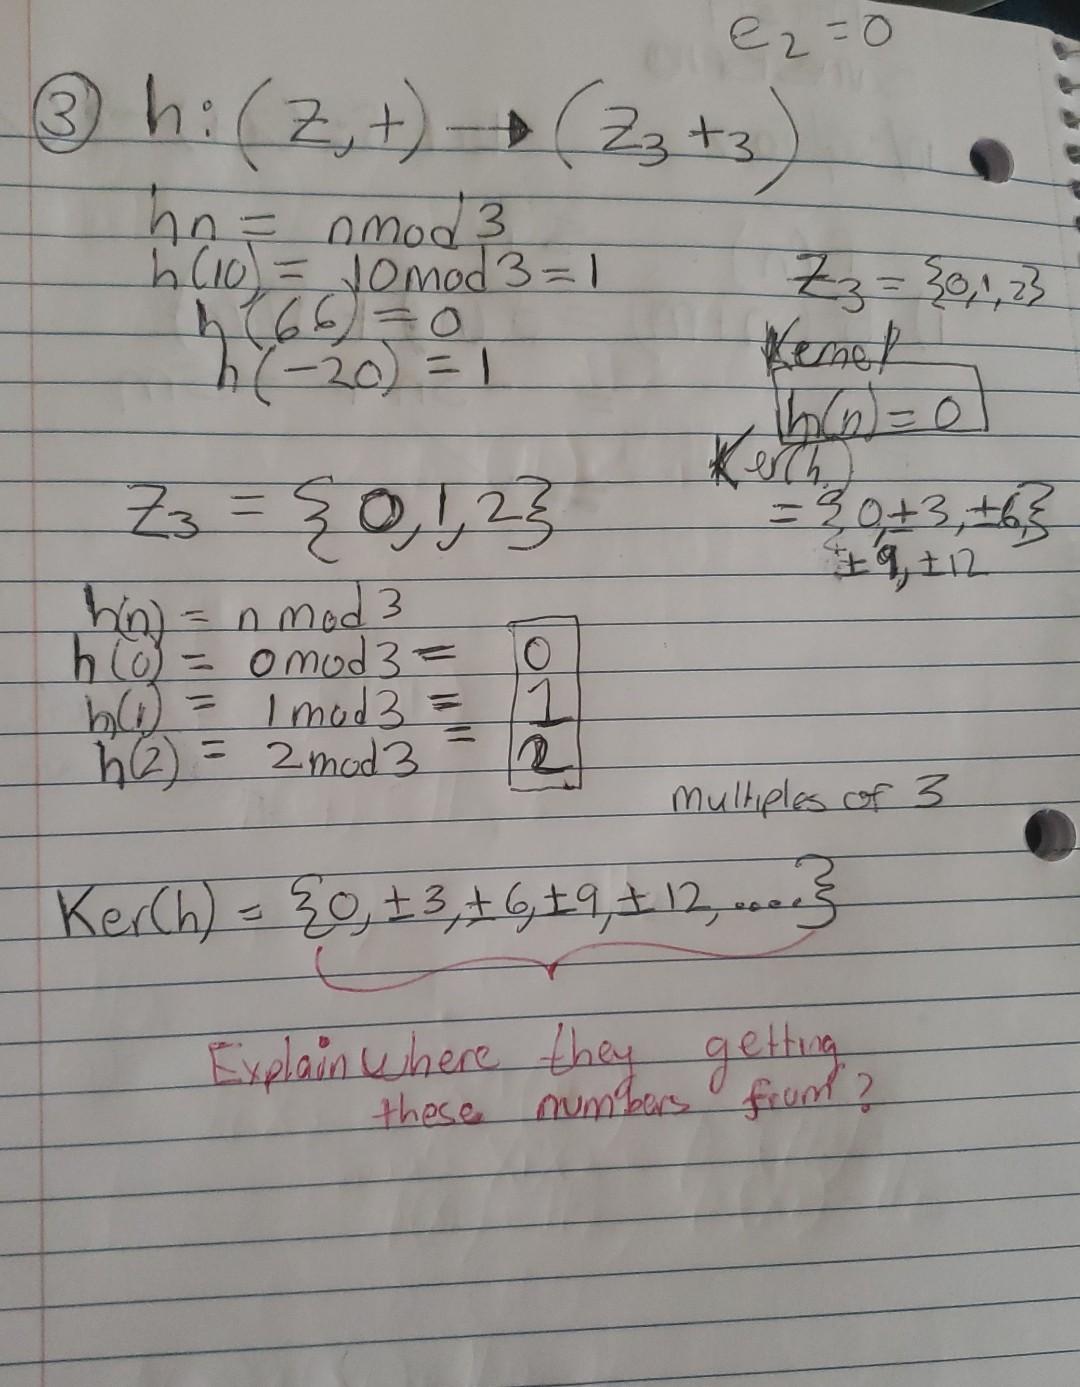 e₂ = 0
③ h: (Z, +) → (Z₃ +₃)
hn = nmod 3
h(10) = 10mod 3 = 1
h(66) = 0
h(-20) = 1
Z₃ = {0,1,2}
Kernel
h(n) = 0
Ker(h)
= {0, ±3, ±6,}
±9, ±12
Z₃ = {0,1,2}
h(n) = n mod 3
h(0) = 0 mod 3 = 0
h(1) = 1 mod 3 = 1
h(2) = 2 mod 3 = 2
multiples of 3
Ker(h) = {0, ±3, ±6, ±9, ±12, .....}
Explain where they getting
these numbers from?